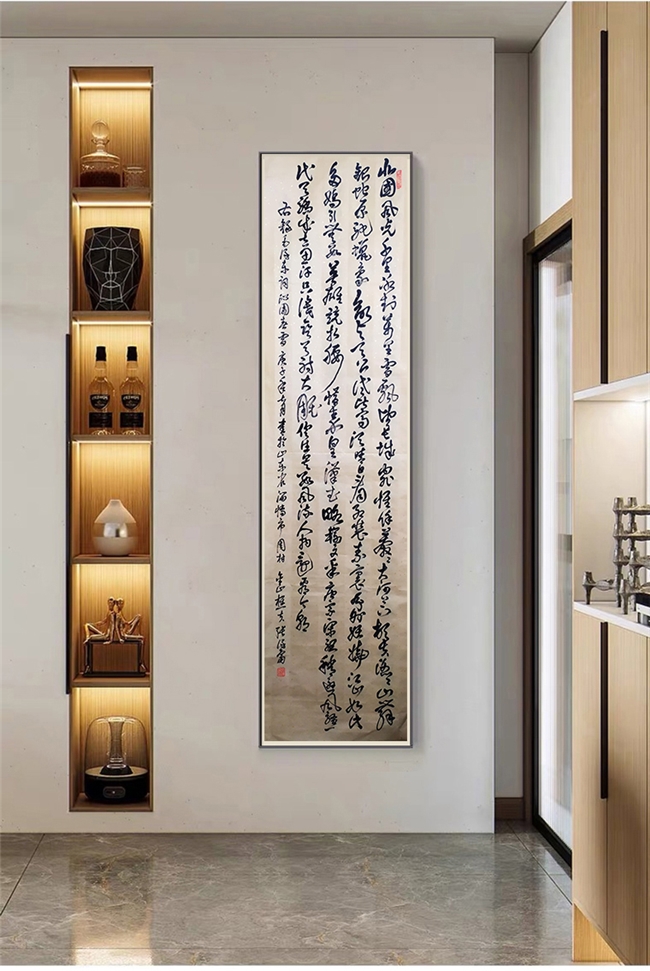 北國風光千里冰封萬里雪飘望长城内外惟余莽々大河上下顿失滔々山舞
銀蛇原驰蜡象欲与天公试比高须晴日看红装素裹分外妖娆江山如此
多嬌引無数英雄競折腰惜秦皇漢武略输文采唐宗宋祖稍逊风骚一
代天骄成吉思汗只識弯弓射大雕俱往矣数风流人物还看今朝
右録毛泽东词沁園春雪庚子年 月書於山东省淄博市周村